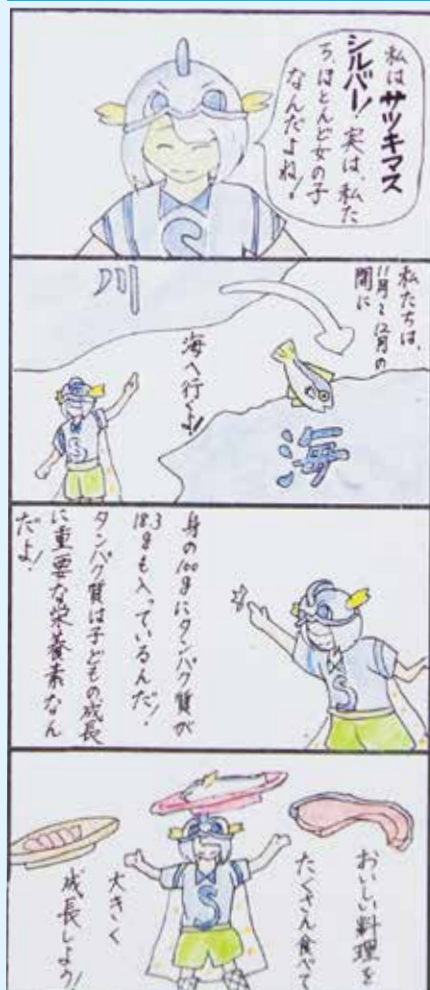 私は サツキマス
シルバー! 実は、私た
ち、ほとんど女の子
なんだよね!
S
私たちは、
11月と12月の
間に
川
海へ行くよ!
海
S
身の100gにタンパク質が
18.3gも入っているんだ!
タンパク質は子どもの成長
に重要な栄養素なん
だよ!
S
おいしい料理を
たくさん食べて
大きく
成長しよう!
S